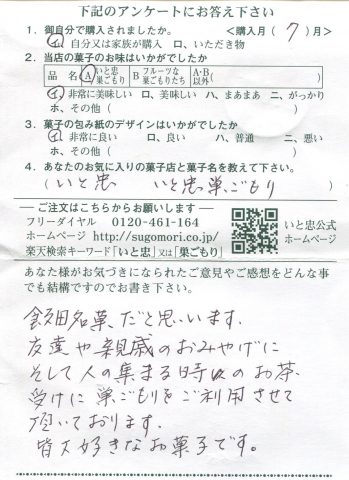 下記のアンケートにお答え下さい
1. 御自分で購入されましたか。 <購入月( 7 )月>
イ、自分又は家族が購入 ロ、いただき物
2. 当店の菓子のお味はいかがでしたか
品 名 A いと忠巣ごもり B フルーツな巣ごもりたち A・B以外( )
イ、非常に美味しい ロ、美味しい ハ、まあまあ ニ、がっかり
ホ、その他(
3. 菓子の包み紙のデザインはいかがでしたか
イ、非常に良い ロ、良い ハ、普通 ニ、悪い
ホ、その他(
4. あなたのお気に入りの菓子店と菓子名を教えて下さい。
( いと忠 いと忠巣ごもり )
ご注文はこちらからお願いします
フリーダイヤル 0120-461-164
ホームページ http://sugomori.co.jp/
楽天検索キーワード「いと忠」又は「巣ごもり」
いと忠公式
ホームページ
あなた様がお気づきになられたご意見やご感想をどんな事
でも結構ですのでお書き下さい。
飯田名菓だと思います.
友達や親戚のおみやげに
そして人の集まる時のお茶
受けに巣ごもりをご利用させて
頂いております.
皆大好きなお菓子です。